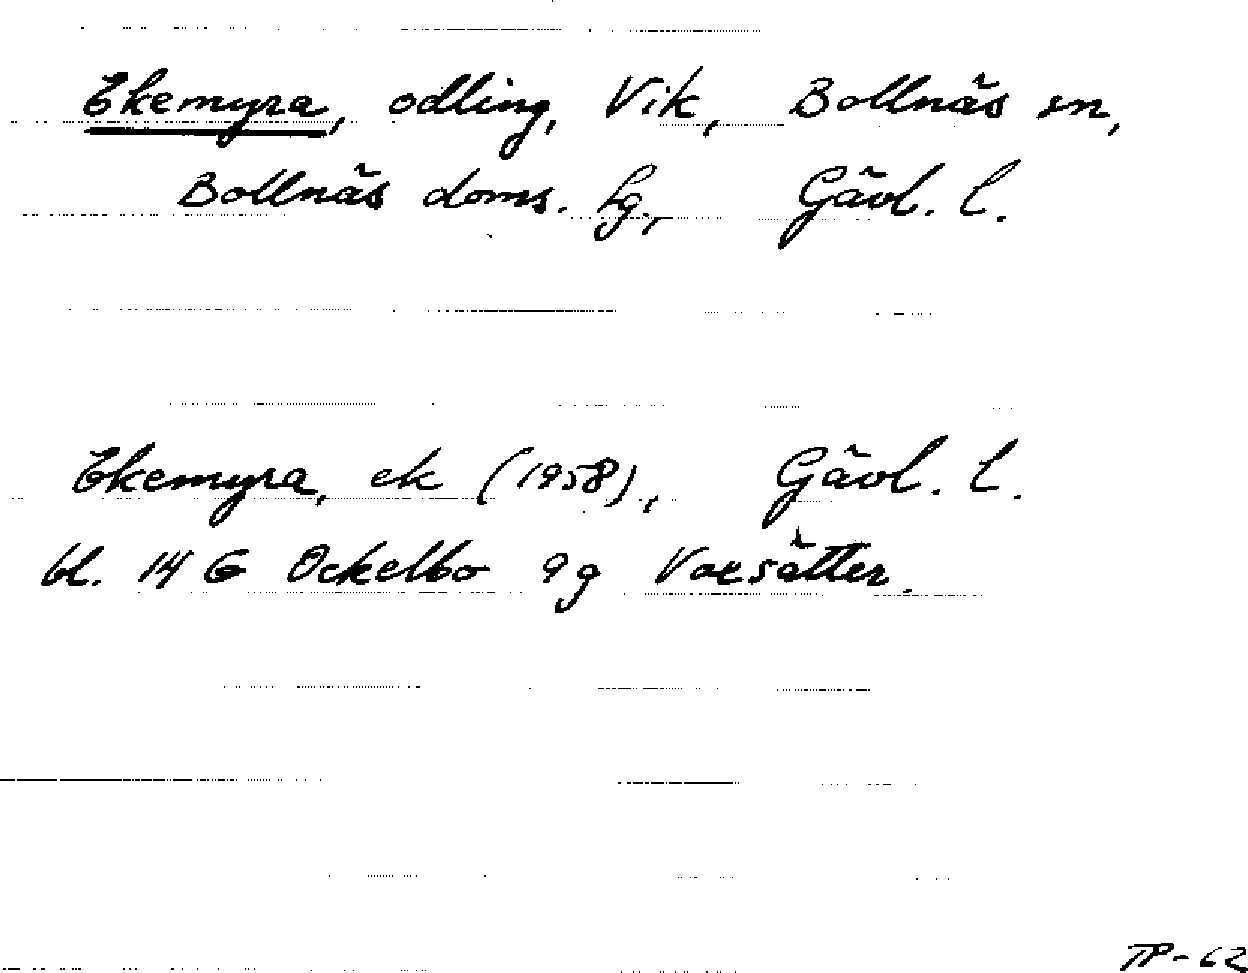 Ekemyra, odling, Vik, Bollnäs sn,
Bollnäs doms. hg., Gävl. l.
Ekemyra, ek (1958), Gävl. l.
bl. 14 G Ockelbo 9g Voxsätter.
TP-62